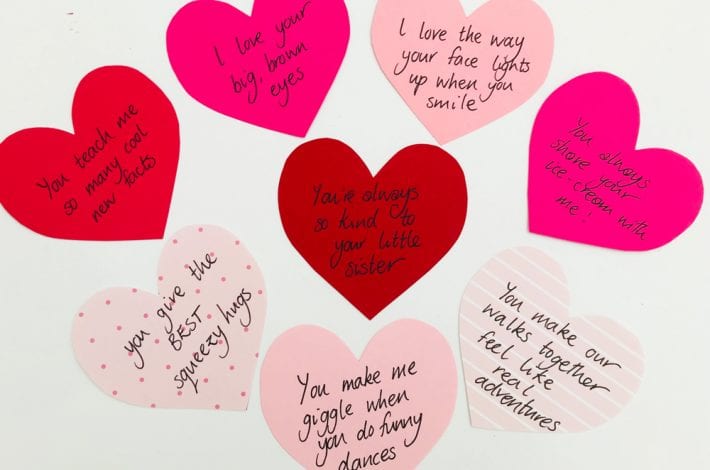 I love your
big, brown
eyes
I love the way
your face lights
up when you
smile
You teach me
so many cool
new facts
You're always
so kind to
your little
sister
You always
share your
ice-cream with
me!
you give the
BEST
squeezy hugs
You make me
giggle when
you do funny
dances
You make our
walks together
feel like
real
adventures